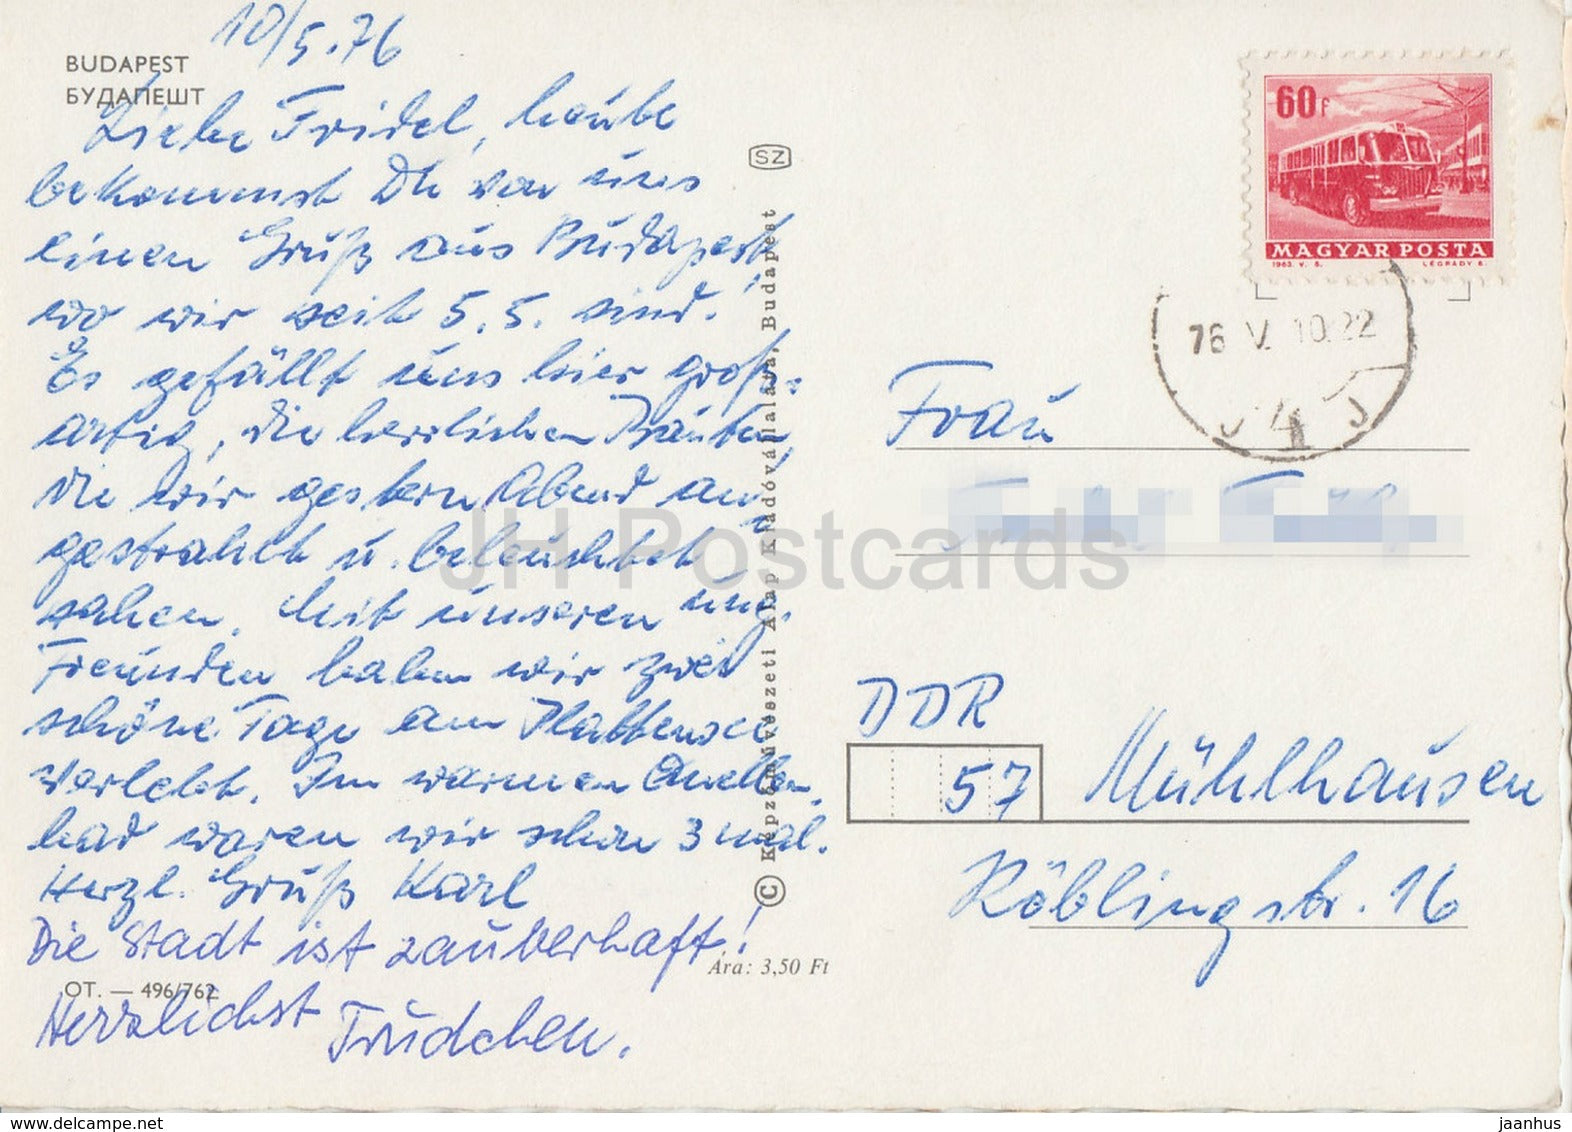 BUDAPEST
БУДАПЕШТ
10/5.76
Liebe Fridel, heute
bekommst Du von uns
einen Gruß aus Budapest,
wo wir seit 5.5. sind.
Es gefällt uns hier groß-
artig, die herrlichen Bauten,
die wir gestern Abend an-
gestrahlt u. beleuchtet
sahen. Mit unseren ung.
Freunden haben wir zwei
schöne Tage am Plattensee
verlebt. Im warmen Quellen-
bad waren wir schon 3 mal.
Herzl. Gruß Karl
Die Stadt ist zauberhaft!
Herzlichst Trudchen.
OT. — 496/762
Ára: 3,50 Ft
SZ
© Képzőművészeti Alap Kiadóvállalata, Budapest
60f
MAGYAR POSTA
1963. V. LÉGRÁDY S.
76 V. 10.22
Frau
DDR
57 Mühlhausen
Röblingstr. 16
JH Postcards
delcampe.net
jaanhus